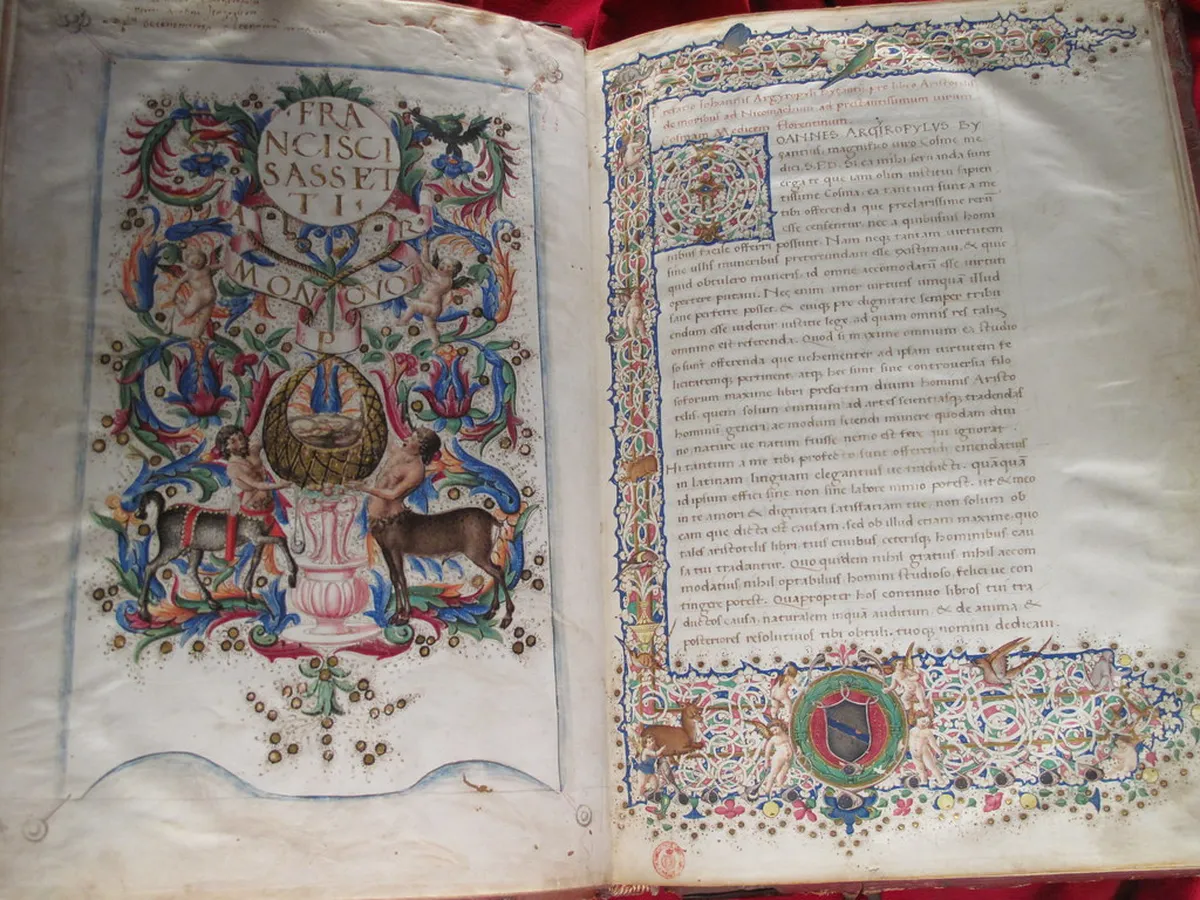 FRA
NCISCI
SASSET
TI
A L P R
MON GVO
P
Prefatio Iohannis Argyropyli byzantij pro libro Aristotelis
de moribus ad Nicomachum ad preclarissimum uirum
Cosmam Medicem florentinum
OANNES ARGYROPYLVS BY
ʒantius, magnifico uiro Cosme me
dici S. P. D. Si ea mihi seruanda sunt
erga te que iam olim institui sapien
tissime Cosma, ea tantum sunt a me
tibi offerenda que preclarissime rerū
esse censentur, nec a quibusuis homi
nibus facile offerri possunt. Nam neqʒ tantam uirtutem
sine ullis muneribus pretereundam esse existimaui, & quic
quid obtulero muneris, id omne accomodatū esse uirtuti
oportere putaui. Nec enim amor uirtutis umquā illud
sane perferre posset, & cuiqʒ pro dignitate semper tribu
endum esse uidetur iustitie lege, ad quam omnis res talis
omnino est referenda. Quod si maxime omnium ea studio
so sunt offerenda que uehementer ad ipsam uirtutem fe
licitatemqʒ pertinent, atqʒ hec sunt sine controuersia filo
soforum maxime libri presertim diuini hominis Aristo
telis, quem solum omnium ad artes scientiasqʒ tradendas
hominū generi, ac modum sciendi munere quodam diui
no, nature ue natum fuisse nemo est fere qui ignorat.
Hi tantum a me tibi profecto sunt offerendi emendatius
in latinam linguam elegantius ue traducti, quāquā
id ipsum effici sane non sine labore nimio potest, ut & meo
in te amori & dignitati satisfaciam tue, non solum ob
eam que dicta est causam, sed ob illud etiam maxime, quo
tales aristotelis libri, tuis ciuibus, ceterisqʒ hominibus cau
sa tui tradantur. Quo quidem nihil gratius, nihil accom
modatius nihil optabilius, homini studioso, felici ue con
tingere potest. Quapropter hos continuo libros tui tra
ductos causa, naturalem inquā auditum, & de anima, &
posteriores resolutiuos tibi obtuli, tuoqʒ nomini dedicaui.